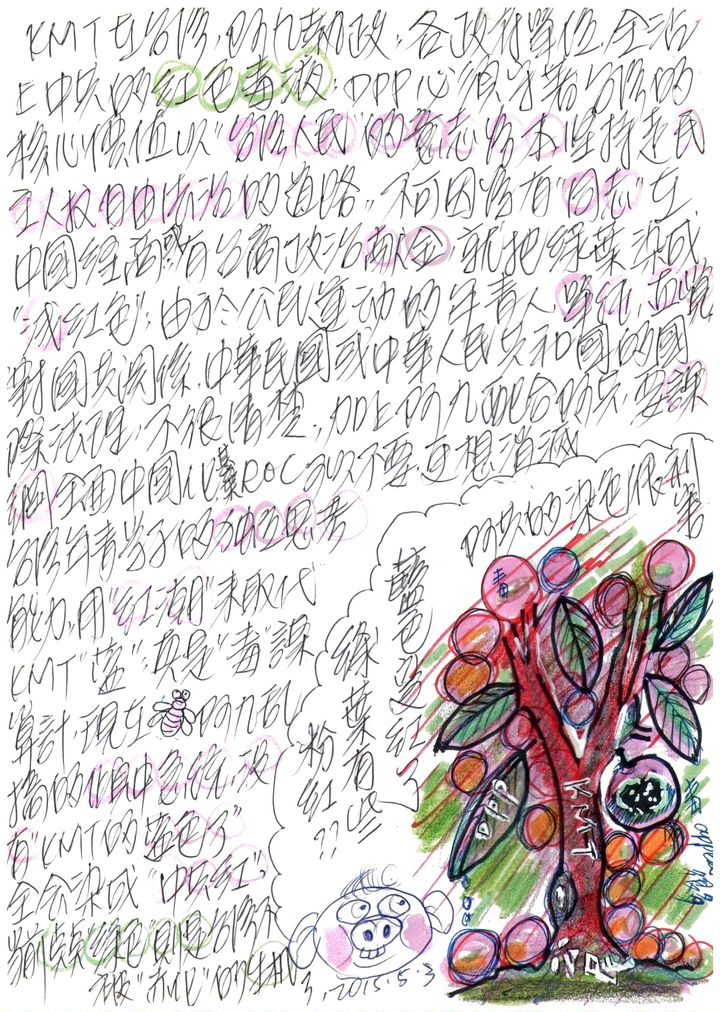 KMT在台灣,阿九執政,各政府單位,全沾
上中共的紅色毒液;DPP必須守著台灣的
核心價值以"台灣人民"的意志為本堅持走民
主人權自由法治的道路,不可因為有"同志"在
中國經商或有台商政治獻金 就把綠葉染成
"淺紅色";由於公民運動的年青人,
對國共關係,中華民國或中華人民共和國的國
際法理,不很清楚,加上阿九配合阿共,要課
綱全面中國化 ROC 想消滅
台灣年青學子的獨立思考
能力,用"紅潮"來取代
KMT"藍";真是"毒"謀
算計,現在 阿九亂
搞的 沒
有"KMT的藍色了"
全會染成"中共紅"
綠色 台灣
被"赤化"的 2015.5.3
阿共的染色很利害
藍色變紅了
綠葉有些
粉紅??
毒
DPP
KMT